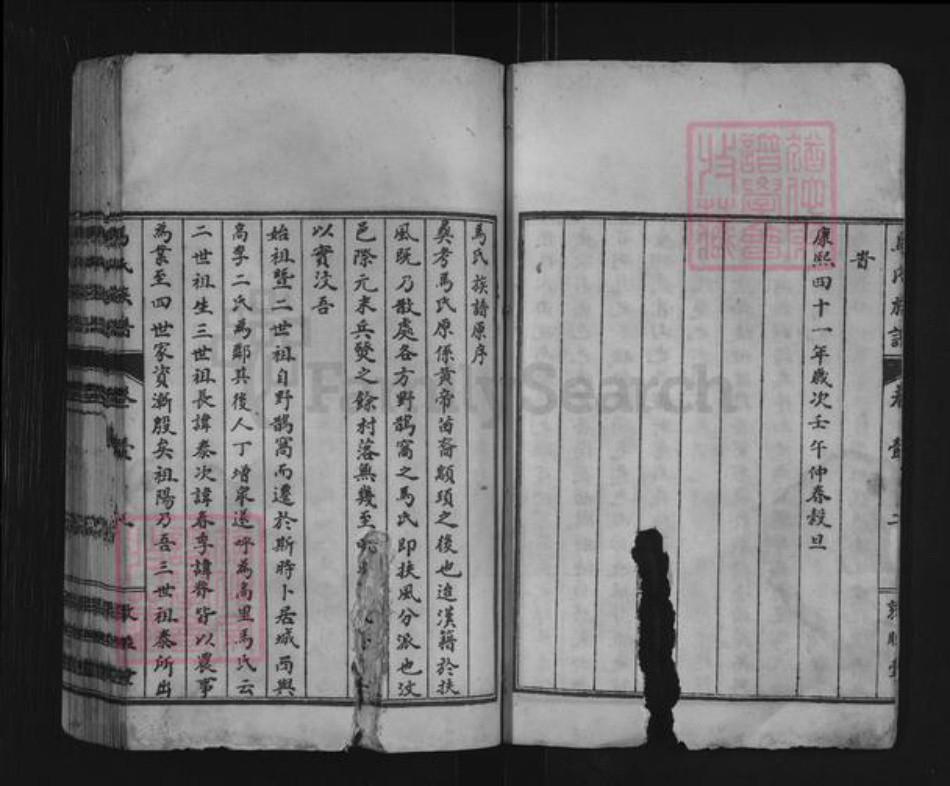 馬氏族譜
旹
康熙四十一年歲次壬午仲春穀旦
馬氏族譜原序
奠考馬氏原係黃帝苗裔顓頊之後也迨漢籍於扶
風旣乃散處各方野鵲窩之馬氏即扶風分派也汶
邑際元末兵燹之餘村落無幾至
以實汶吾
始祖暨二世祖自野鵲窩而遷於斯時卜居城南與
高李二氏為鄰其後人丁增衆遂呼為高里馬氏云
二世祖生三世祖長諱泰次諱春季諱督皆以農事
為業至四世家資漸殷矣祖陽乃吾三世祖泰所出
馬氏族譜
FamilySearch